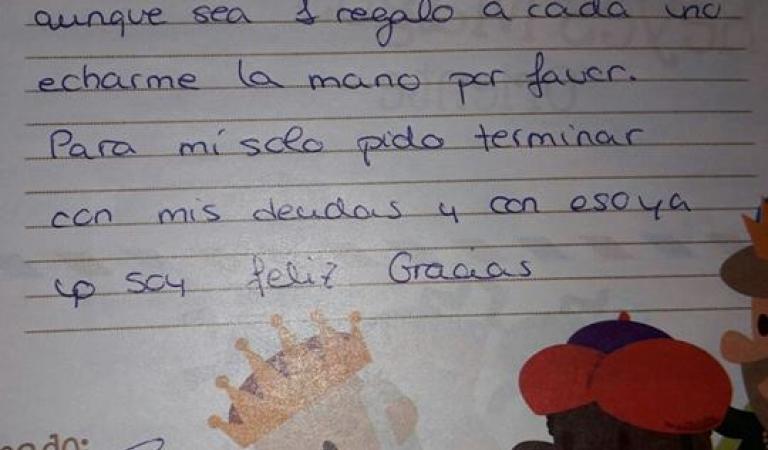 aunque sea 1 regalo a cada uno
echarme la mano por favor.
Para mí solo pido terminar
con mis deudas y con eso ya
yo soy feliz Gracias